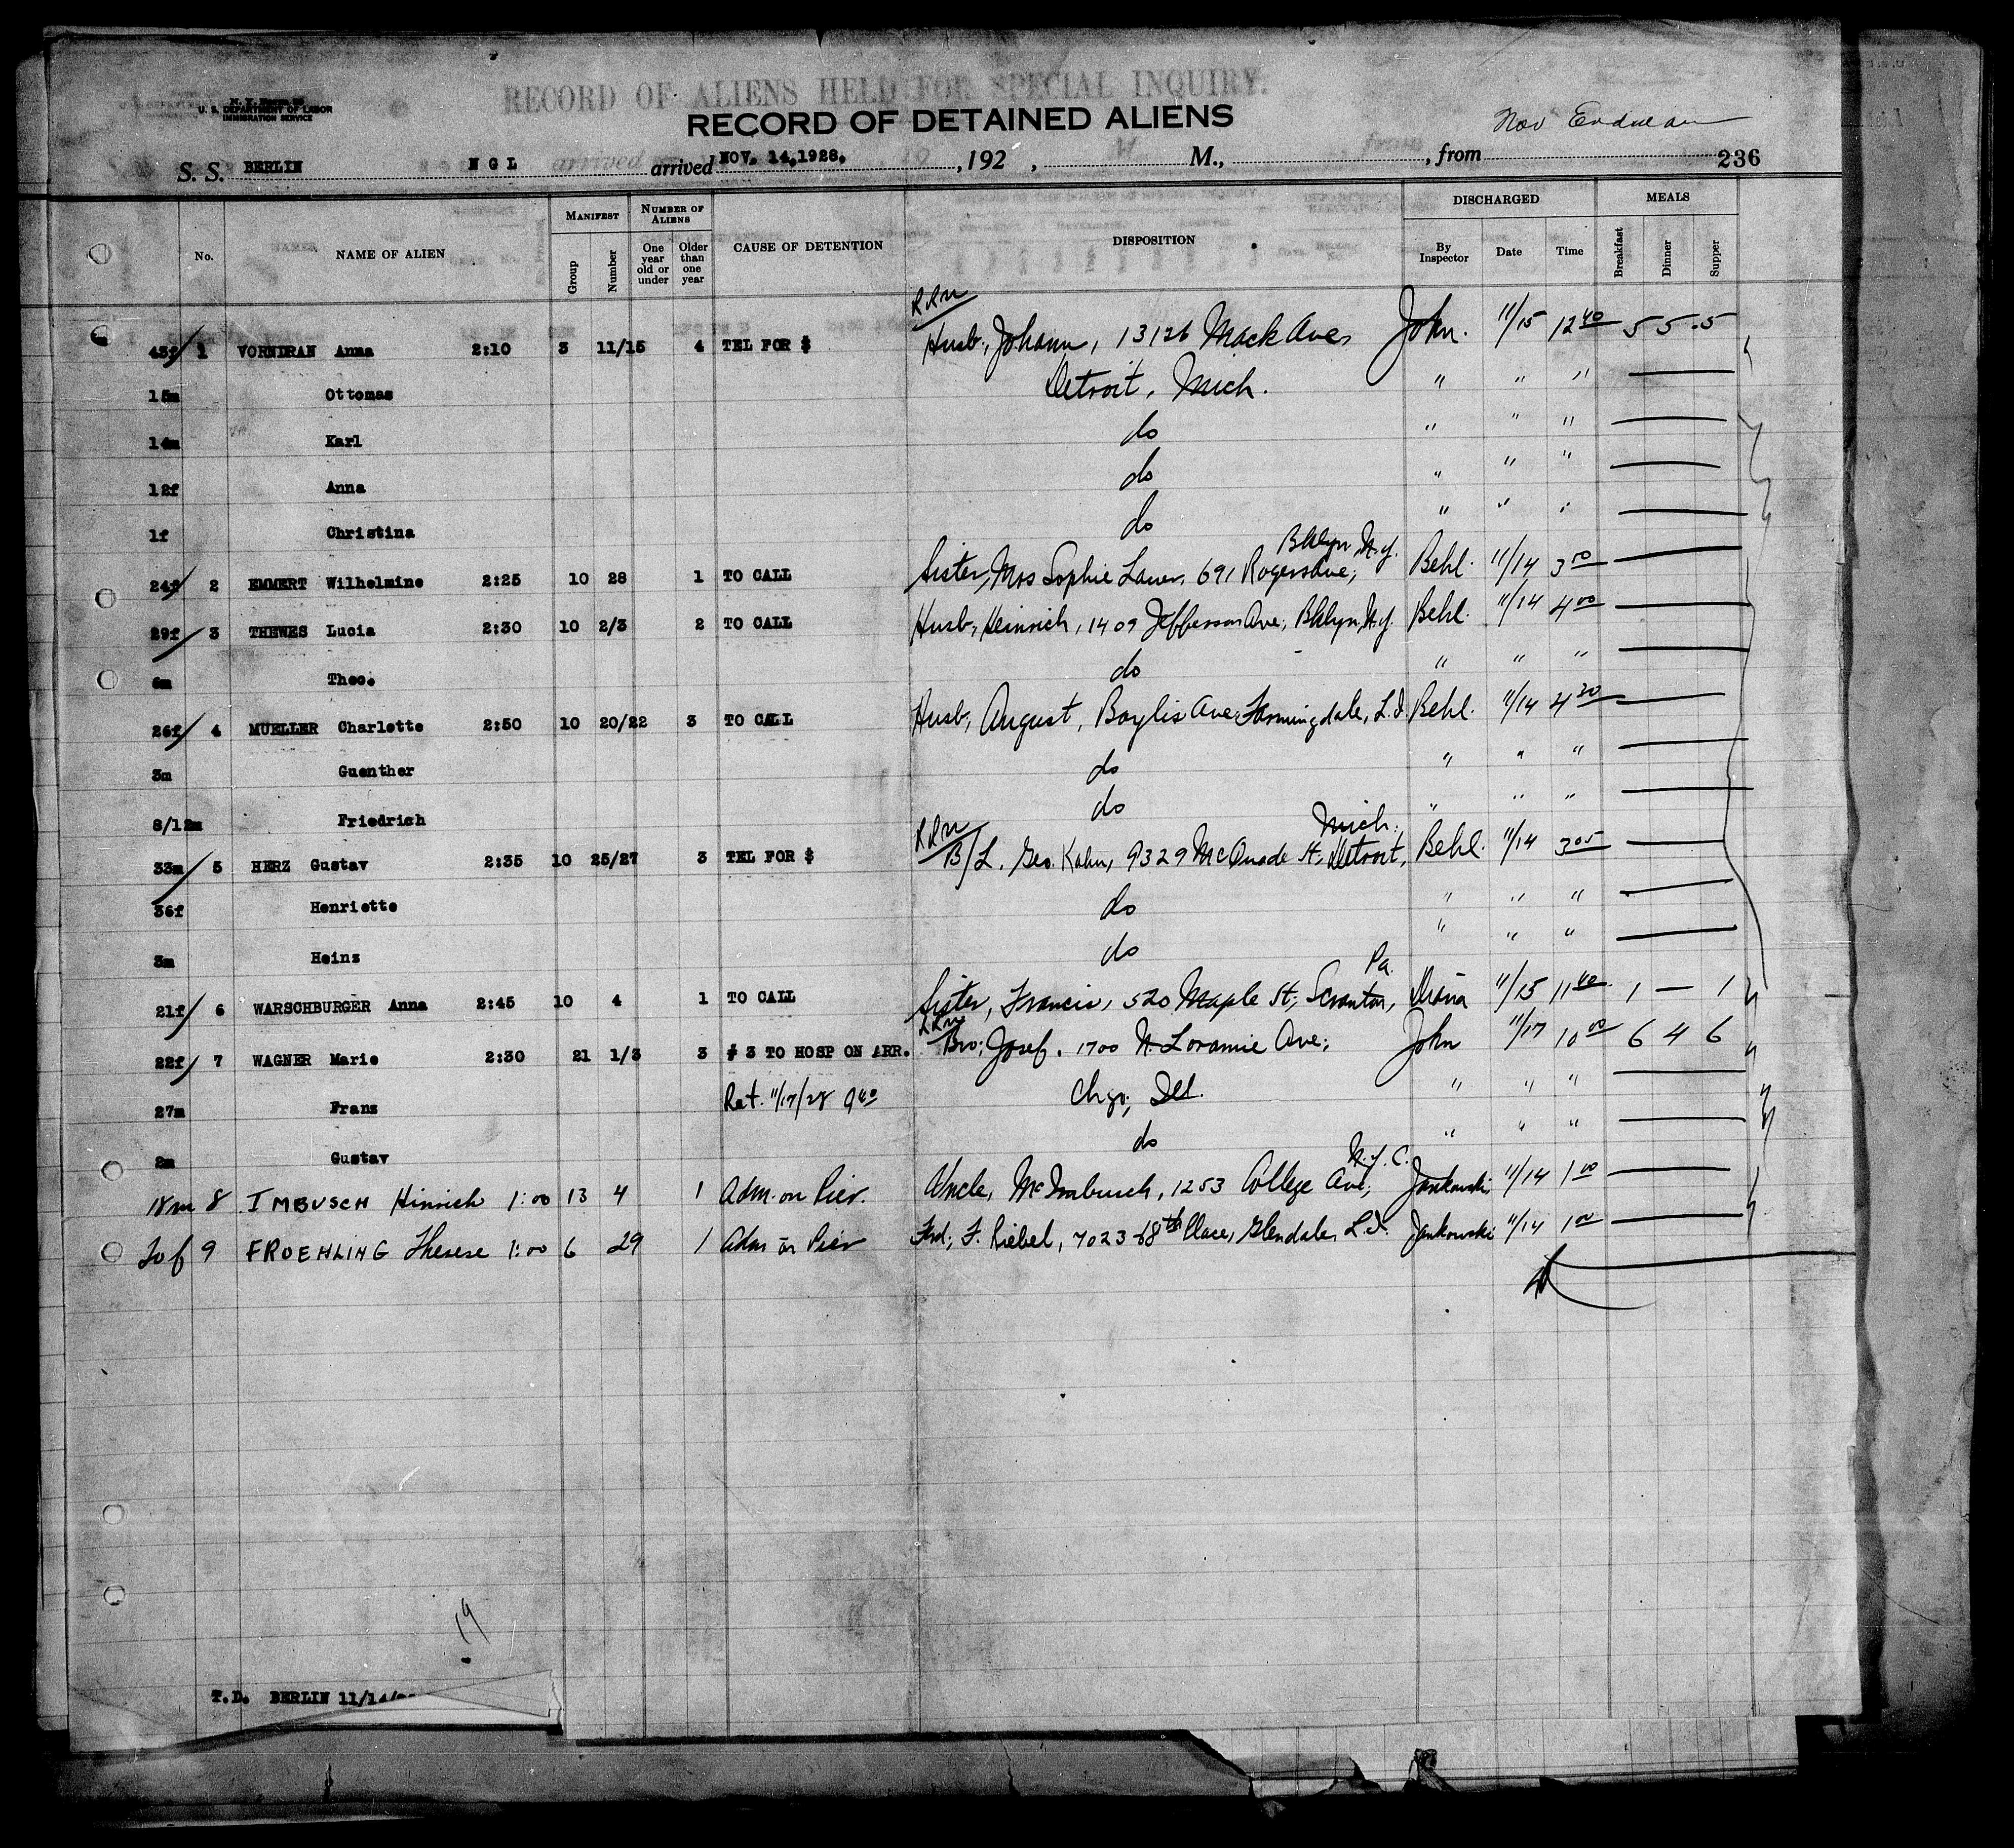 RECORD OF ALIENS HELD FOR SPECIAL INQUIRY.
U. S. DEPARTMENT OF LABOR
IMMIGRATION SERVICE
RECORD OF DETAINED ALIENS
Nov
S. S. BERLIN N G L arrived NOV. 14,1928. , 192 , M., , from 236
No. NAME OF ALIEN MANIFEST Group Number NUMBER OF ALIENS One year old or under Older than one year CAUSE OF DETENTION DISPOSITION DISCHARGED By Inspector Date Time MEALS Breakfast Dinner Supper
43f 1 VORNDRAN Anna 2:10 3 11/15 4 TEL FOR $ Husb, Johann, 13126 Mack Ave, John. 11/15 12 40 5 5 5
15m Ottomas Detroit, Mich. " " "
14m Karl do " " "
12f Anna do " " "
1f Christina do " " "
24f 2 EMMERT Wilhelmine 2:25 10 28 1 TO CALL Sister, Mrs Sophie Lauer, 691 Rogers Ave, Bklyn, N.Y. Behl. 11/14 3 00
29f 3 THEWES Lucia 2:30 10 2/3 2 TO CALL Husb, Heinrich, 1409 Jefferson Ave, Bklyn, N.Y. Behl. 11/14 4 00
6m Theo. do " " "
26f 4 MUELLER Charlotte 2:50 10 20/22 3 TO CALL Husb, August, Baylis Ave, Farmingdale, L.I. Behl. 11/14 4 20
3m Guenther do " " "
8/12m Friedrich do " " "
33m 5 HERZ Gustav 2:35 10 25/27 3 TEL FOR $ B/L. Geo. Kahn, 9329 McQuade St, Detroit, Mich. Behl. 11/14 3 05
36f Henriette do " " "
3m Heinz do " " "
21f 6 WARSCHBURGER Anna 2:45 10 4 1 TO CALL Sister, Francis, 520 Maple St, Scranton, Pa. 11/15 11 40 1 — 1
22f 7 WAGNER Marie 2:30 21 1/3 3 # 3 TO HOSP ON ARR. Bro, Josef. 1700 N. Loramie Ave; John 11/17 10 00 6 4 6
27m Franz Ret. 11/17/28 9 40 Chgo, Ill. " " "
2m Gustav do " " "
18m 8 IMBUSCH Hinrich 1:00 13 4 1 Adm. on Pier. Uncle, Mc Imbusch, 1253 College Ave, N.Y.C. Jankowski 11/14 1 00
20f 9 FROEHLING Therese 1:00 6 29 1 Adm on Pier Frd, F. Riebel, 7023-68th Place, Glendale, L.I. Jankowski 11/14 1 00
19
T.D. BERLIN 11/14/